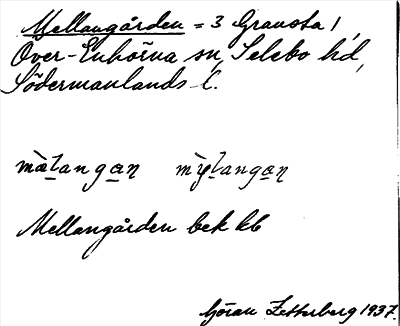 Mellangården = 3 Gransta 1,
Över-Enhörna sn, Selebo hd,
Södermanlands l.
mæ̀langan mỳlangan
Mellangården bek kb
Göran Zetterberg 1937.